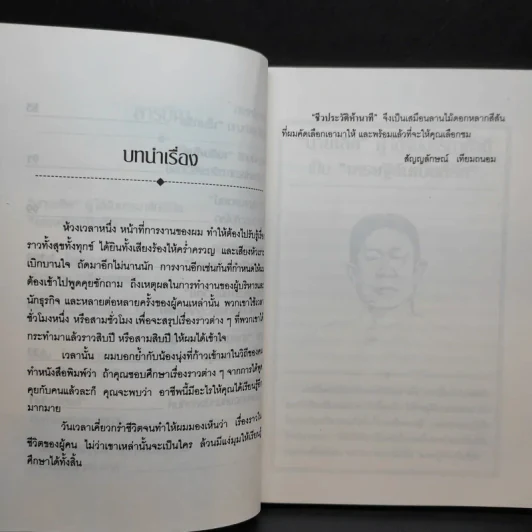 บทนำเรื่อง
ห้วงเวลาหนึ่ง หน้าที่การงานของผม ทำให้ต้องไปรับรู้เรื่อง
ราวทั้งสุขทั้งทุกข์ ได้ยินทั้งเสียงร้องไห้คร่ำครวญ และเสียงหัวเราะ
เบิกบานใจ ถัดมาอีกไม่นานนัก การงานอีกเช่นกันที่กำหนดให้ผม
ต้องเข้าไปพูดคุยซักถาม ถึงเหตุผลในการทำงานของผู้บริหาร
นักธุรกิจ และหลายต่อหลายครั้งของผู้คนเหล่านั้น พวกเขาใช้เวลา
ชั่วโมงหนึ่ง หรือสามชั่วโมง เพื่อจะสรุปเรื่องราวต่าง ๆ ที่พวกเขาได้
กระทำมาแล้วราวสิบปี หรือสามสิบปี ให้ผมได้เข้าใจ
เวลานั้น ผมบอกย้ำกับน้องนุ่งที่ก้าวเข้ามาในวิถีของคน
ทำหนังสือพิมพ์ว่า ถ้าคุณชอบศึกษาเรื่องราวต่าง ๆ จากการได้พูด
คุยกับคนแล้วละก็ คุณจะพบว่า อาชีพนี้มีอะไรให้คุณได้เรียนรู้
มากมาย
วันเวลาเคี่ยวกรำชีวิตจนทำให้ผมมองเห็นว่า เรื่องราวใน
ชีวิตของผู้คน ไม่ว่าเขาเหล่านั้นจะเป็นใคร ล้วนมีแง่มุมให้เรียนรู้
ศึกษาได้ทั้งสิ้น
"ชีวประวัติห้านาที" จึงเป็นเสมือนลานไม้ดอกหลากสีสัน
ที่ผมคัดเลือกเอามาให้ และพร้อมแล้วที่จะให้คุณเลือกชม
สัญญลักษณ์ เทียมถนอม